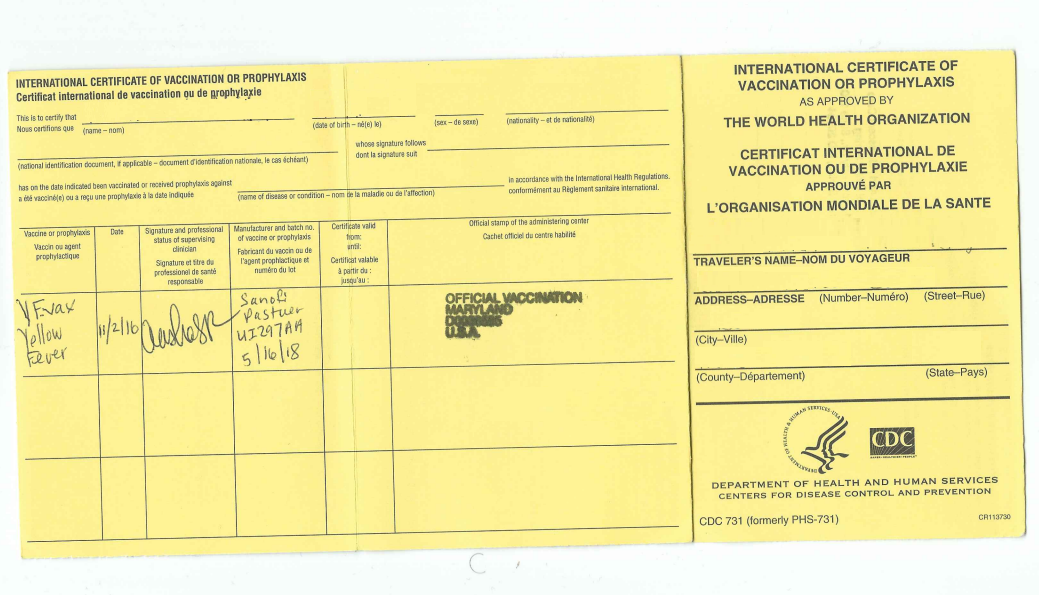 INTERNATIONAL CERTIFICATE OF VACCINATION OR PROPHYLAXIS
Certificat international de vaccination ou de prophylaxie
This is to certify that
Nous certifions que
(name – nom)
(date of birth – né(e) le)
(sex – de sexe)
(nationality – et de nationalité)
whose signature follows
dont la signature suit
(national identification document, if applicable – document d'identification nationale, le cas échéant)
has on the date indicated been vaccinated or received prophylaxis against
a été vacciné(e) ou a reçu une prophylaxie à la date indiquée
(name of disease or condition – nom de la maladie ou de l'affection)
in accordance with the International Health Regulations.
conformément au Règlement sanitaire international.
Vaccine or prophylaxis
Vaccin ou agent
prophylactique
Date
Signature and professional
status of supervising
clinician
Signature et titre du
professionel de santé
responsable
Manufacturer and batch no.
of vaccine or prophylaxis
Fabricant du vaccin ou de
l'agent prophlactique et
numéro du lot
Certificate valid
from:
until:
Certificat valable
à partir du :
jusqu'au :
Official stamp of the administering center
Cachet officiel du centre habilité
YFvax
Yellow
Fever
11/2/16
Sanofi
Pastuer
UI297AA
5/16/18
OFFICIAL VACCINATION
MARYLAND
U.S.A.
INTERNATIONAL CERTIFICATE OF
VACCINATION OR PROPHYLAXIS
AS APPROVED BY
THE WORLD HEALTH ORGANIZATION
CERTIFICAT INTERNATIONAL DE
VACCINATION OU DE PROPHYLAXIE
APPROUVÉ PAR
L'ORGANISATION MONDIALE DE LA SANTE
TRAVELER'S NAME–NOM DU VOYAGEUR
ADDRESS–ADRESSE (Number–Numéro) (Street–Rue)
(City–Ville)
(County–Département) (State–Pays)
DEPARTMENT OF HEALTH & HUMAN SERVICES•USA
CDC
DEPARTMENT OF HEALTH AND HUMAN SERVICES
CENTERS FOR DISEASE CONTROL AND PREVENTION
CDC 731 (formerly PHS-731)
CR113730